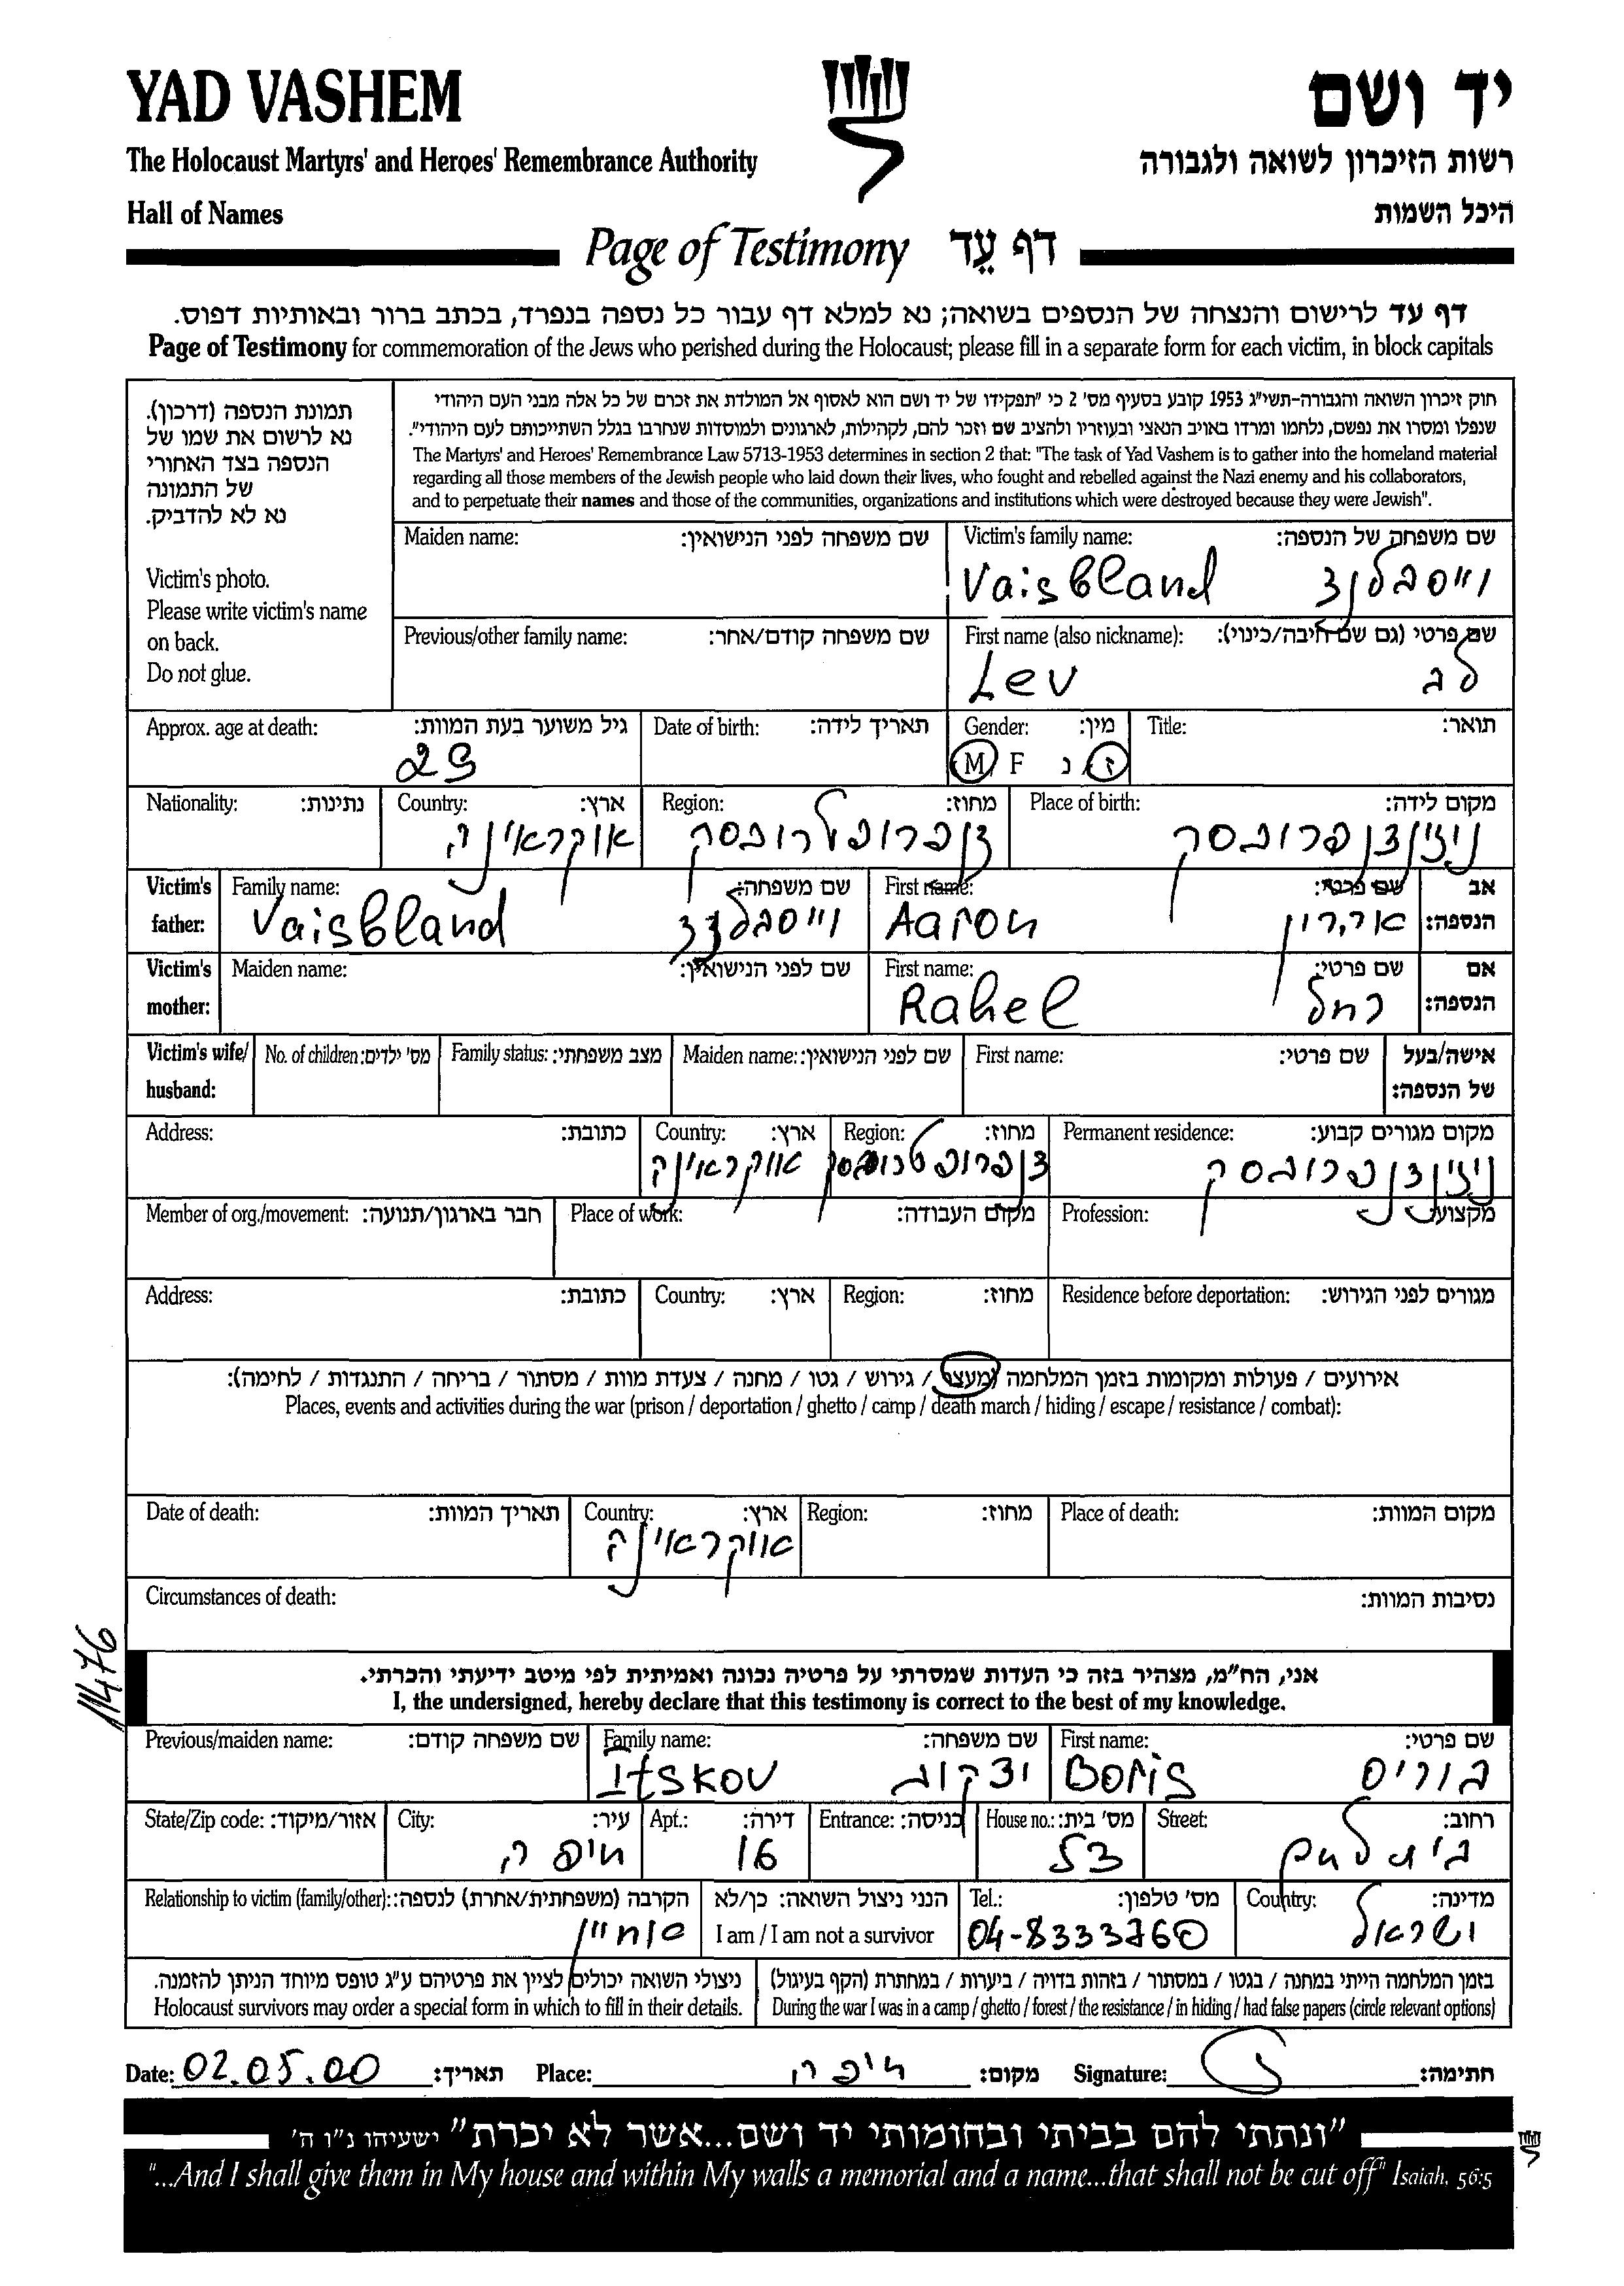 YAD VASHEM
יד ושם
The Holocaust Martyrs' and Heroes' Remembrance Authority
רשות הזיכרון לשואה ולגבורה
Hall of Names
היכל השמות
Page of Testimony דף עֵד
דף עד לרישום והנצחה של הנספים בשואה; נא למלא דף עבור כל נספה בנפרד, בכתב ברור ובאותיות דפוס.
Page of Testimony for commemoration of the Jews who perished during the Holocaust; please fill in a separate form for each victim, in block capitals
תמונת הנספה (דרכון).
נא לרשום את שמו של
הנספה בצד האחורי
של התמונה
נא לא להדביק.
Victim's photo.
Please write victim's name
on back.
Do not glue.
חוק זיכרון השואה והגבורה-תשי"ג 1953 קובע בסעיף מס' 2 כי "תפקידו של יד ושם הוא לאסוף אל המולדת את זכרם של כל אלה מבני העם היהודי
שנפלו ומסרו את נפשם, נלחמו ומרדו באויב הנאצי ובעוזריו ולהציב שם וזכר להם, לקהילות, לארגונים ולמוסדות שנחרבו בגלל השתייכותם לעם היהודי".
The Martyrs' and Heroes' Remembrance Law 5713-1953 determines in section 2 that: "The task of Yad Vashem is to gather into the homeland material
regarding all those members of the Jewish people who laid down their lives, who fought and rebelled against the Nazi enemy and his collaborators,
and to perpetuate their names and those of the communities, organizations and institutions which were destroyed because they were Jewish".
Maiden name: שם משפחה לפני הנישואין:
Victim's family name: שם משפחה של הנספה:
Vaisbland וייסבלנד
Previous/other family name: שם משפחה קודם/אחר:
First name (also nickname): שם פרטי (גם שם חיבה/כינוי):
Lev לב
Approx. age at death: גיל משוער בעת המוות:
29
Date of birth: תאריך לידה:
Gender: מין:
M F נ / ז
Title: תואר:
Nationality: נתינות:
Country: ארץ:
אוקראינה
Region: מחוז:
דנפרופטרובסק
Place of birth: מקום לידה:
ניזינדנפרובסק
Victim's father: אב הנספה:
Family name: שם משפחה:
Vaisbland וייסבלנד
First name: שם פרטי:
Aaron
Victim's mother: אם הנספה:
Maiden name: שם לפני הנישואין:
First name: שם פרטי:
Rahel רחל
Victim's wife/ husband: אישה/בעל של הנספה:
No. of children: מס' ילדים:
Family status: מצב משפחתי:
Maiden name: שם לפני הנישואין:
First name: שם פרטי:
Address: כתובת:
Country: ארץ:
אווקראינה
Region: מחוז:
Permanent residence: מקום מגורים קבוע:
ניזינדנפרובסק
Member of org./movement: חבר בארגון/תנועה:
Place of work: מקום העבודה:
Profession: מקצוע:
Address: כתובת:
Country: ארץ:
Region: מחוז:
Residence before deportation: מגורים לפני הגירוש:
אירועים / פעולות ומקומות בזמן המלחמה (מעצר / גירוש / גטו / מחנה / צעדת מוות / מסתור / בריחה / התנגדות / לחימה):
Places, events and activities during the war (prison / deportation / ghetto / camp / death march / hiding / escape / resistance / combat):
Date of death: תאריך המוות:
Country: ארץ:
אווקראינה
Region: מחוז:
Place of death: מקום המוות:
Circumstances of death: נסיבות המוות:
11476
אני, הח"מ, מצהיר בזה כי העדות שמסרתי על פרטיה נכונה ואמיתית לפי מיטב ידיעתי והכרתי.
I, the undersigned, hereby declare that this testimony is correct to the best of my knowledge.
Previous/maiden name: שם משפחה קודם:
Family name: שם משפחה:
Itskov יצקוב
First name: שם פרטי:
Boris בוריס
State/Zip code: אזור/מיקוד:
City: עיר:
חיפה
Apt.: דירה:
16
Entrance: כניסה:
House no.: מס' בית:
Street: רחוב:
בית לחם
Relationship to victim (family/other): הקרבה (משפחתית/אחרת) לנספה:
אחיין
הנני ניצול השואה: כן/לא
I am / I am not a survivor
Tel.: מס' טלפון:
04-8333760
Country: מדינה:
ישראל
ניצולי השואה יכולים לציין את פרטיהם ע"ג טופס מיוחד הניתן להזמנה.
Holocaust survivors may order a special form in which to fill in their details.
בזמן המלחמה הייתי במחנה / בגטו / במסתור / בזהות בדויה / ביערות / במחתרת (הקף בעיגול)
During the war I was in a camp / ghetto / forest / the resistance / in hiding / had false papers (circle relevant options)
Date: 02.05.00 תאריך: Place: חיפה מקום: Signature: חתימה:
"ונתתי להם בביתי ובחומותי יד ושם...אשר לא יכרת" ישעיהו נ"ו ה'
"...And I shall give them in My house and within My walls a memorial and a name...that shall not be cut off" Isaiah, 56:5